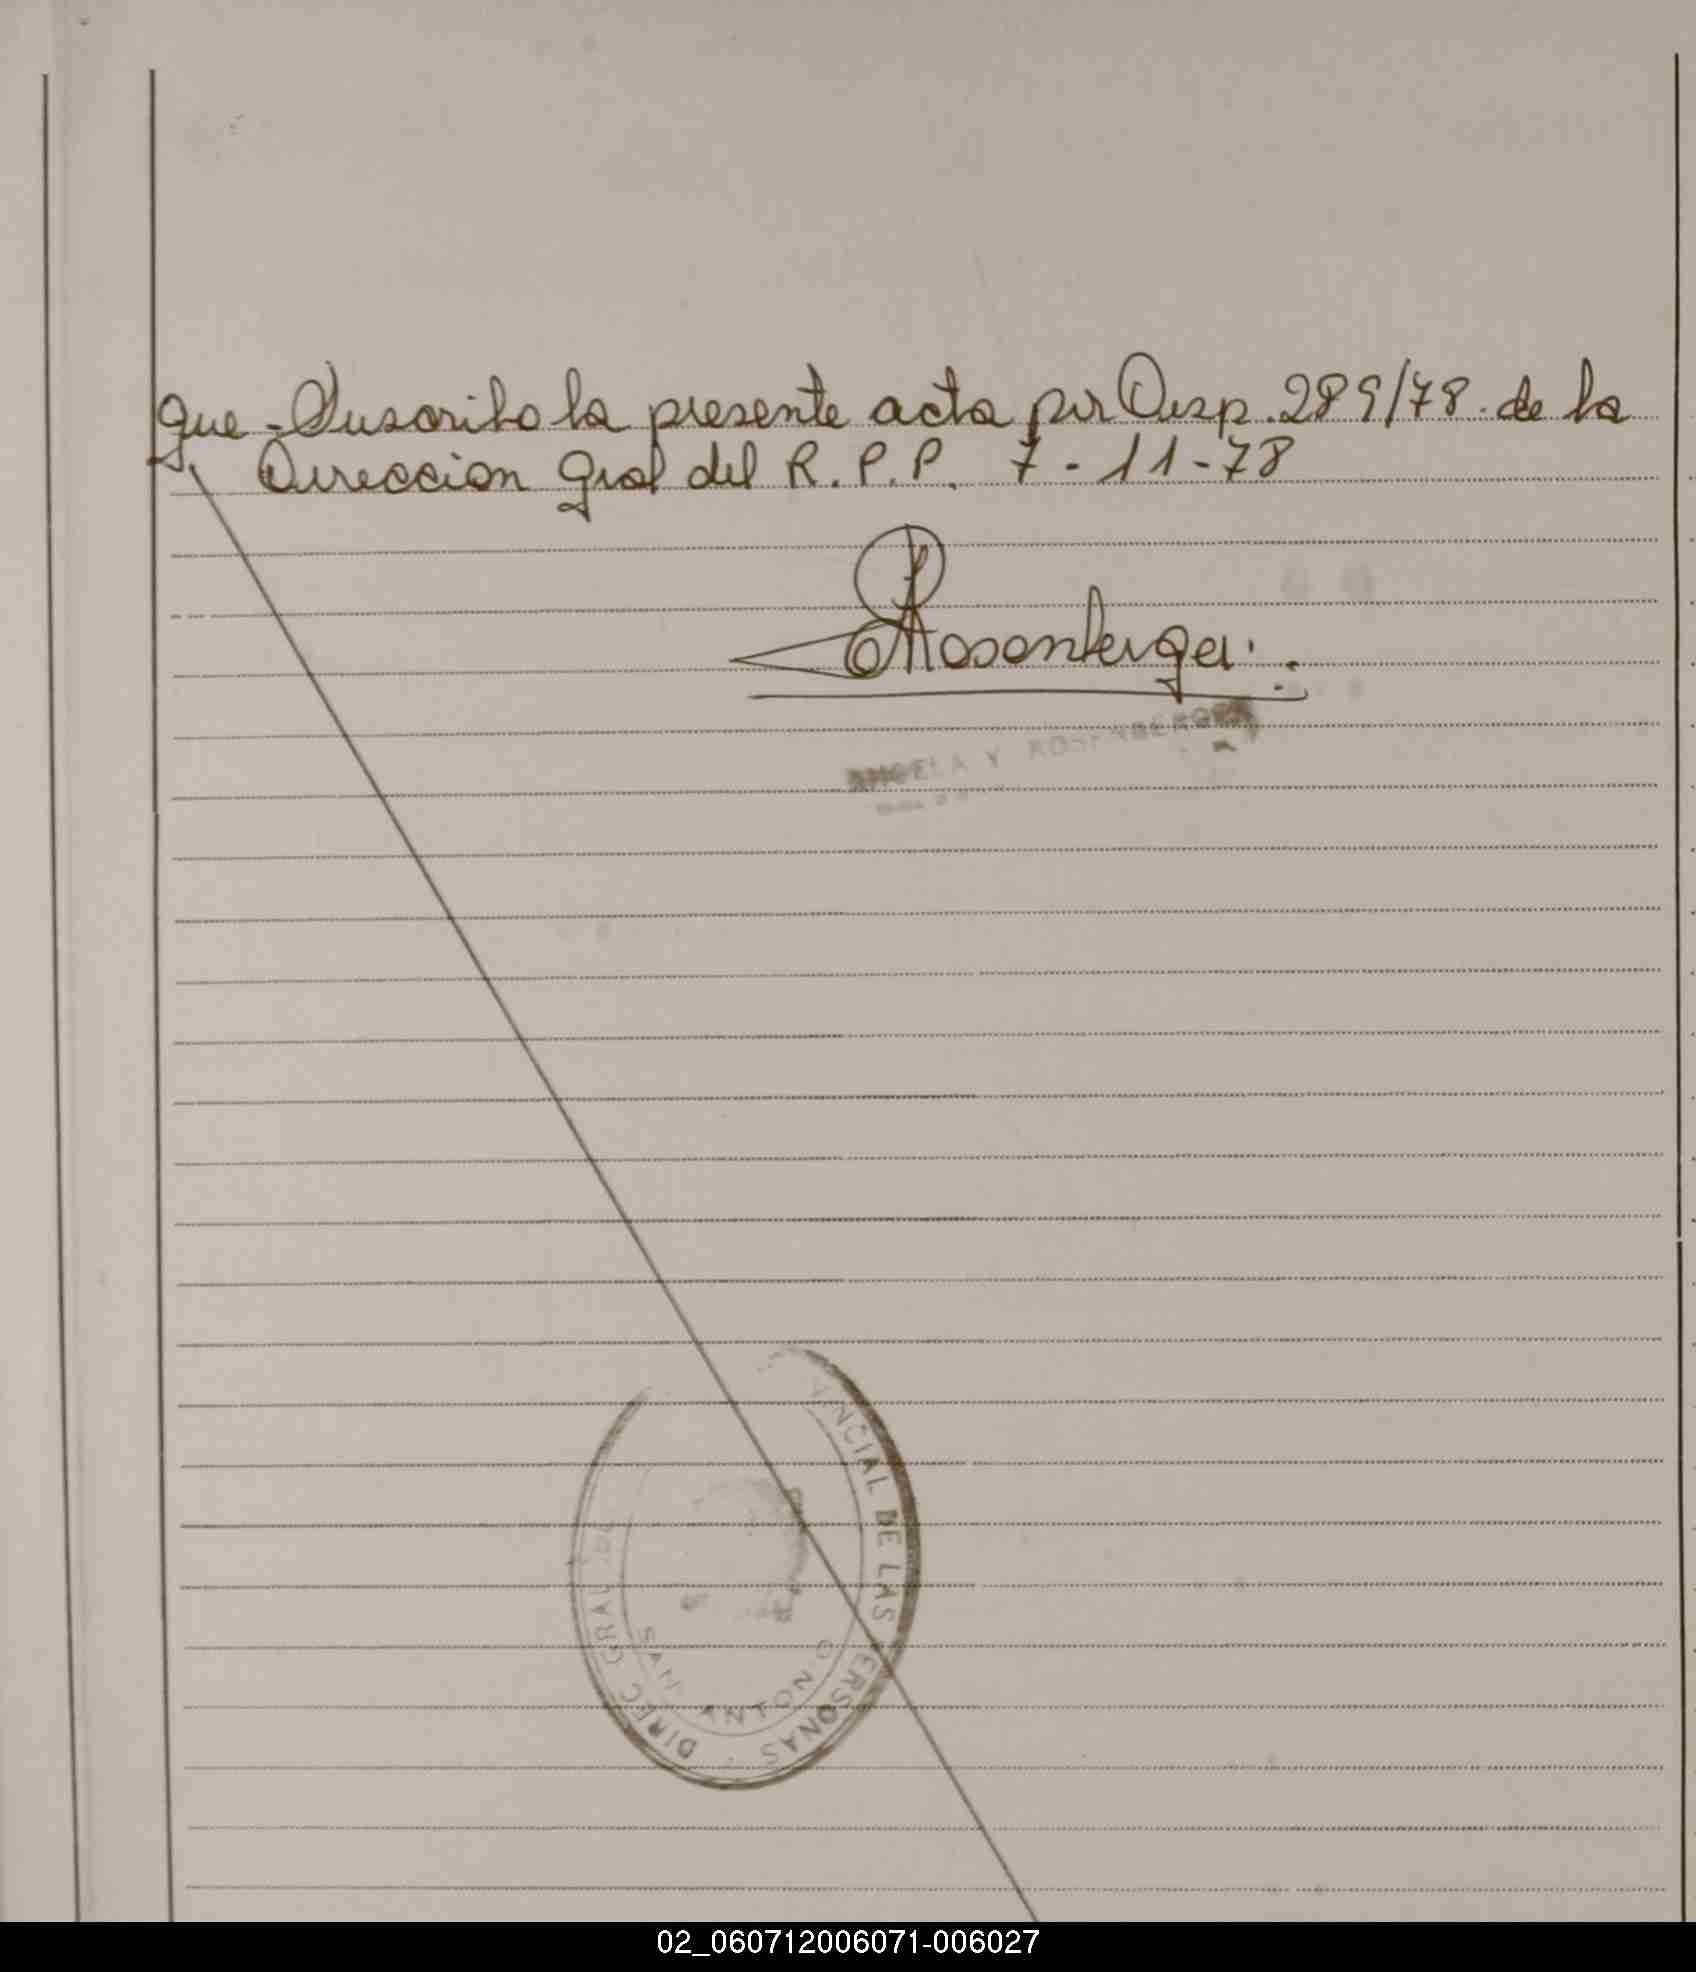 que - Suscribo la presente acta por Disp. 289/78. de la
Direccion Gral del R. P. P. 7 - 11 - 78
Rosenberger
ANGELA Y ROSENBERGER
DIREC GRAL DE VINCIAL DE LAS PERSONAS
SAN ANTONIO
02_060712006071-006027